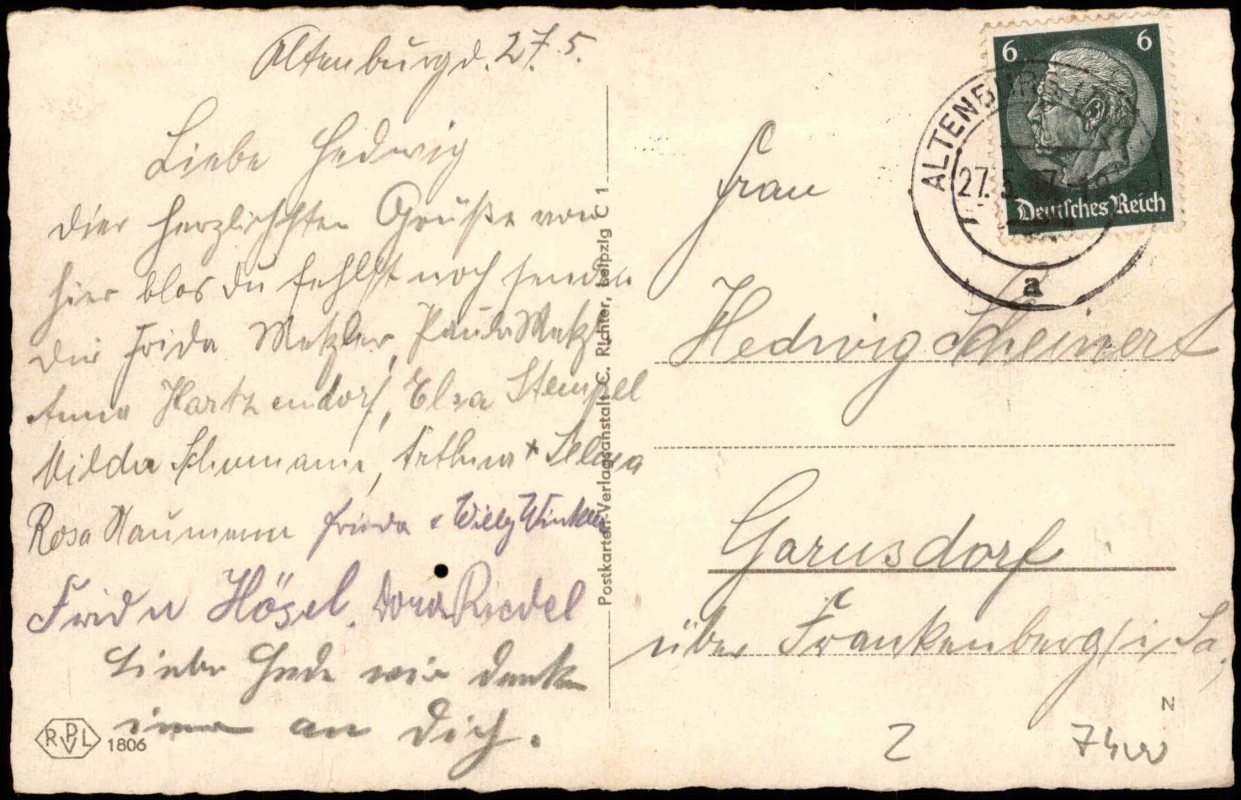 Altenburg d. 27.5.
Liebe Hedwig
die herzlichsten Grüße von
hier blos du fehlst noch senden
dir Frida Metzler, Paula Metz
Anna Hartzendorf, Elsa Stempel
Milda Schumann, Arthur + Selma
Rosa Naumann Frieda & Willy Winkler
Frida Hösel, Dora Riedel
Liebe Hede wir denken
immer an dich.
RPVL 1806
Postkarten-Verlagsanstalt C. Richter, Leipzig C 1
6 6
Deutsches Reich
ALTENBURG
27.5.
a
Frau
Hedwig Scheinert
Garnsdorf
über Frankenberg i Sa,
N
2